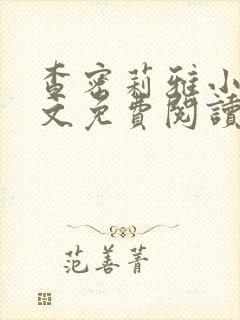 查密莉雅小
文免費閱讀
范善菁